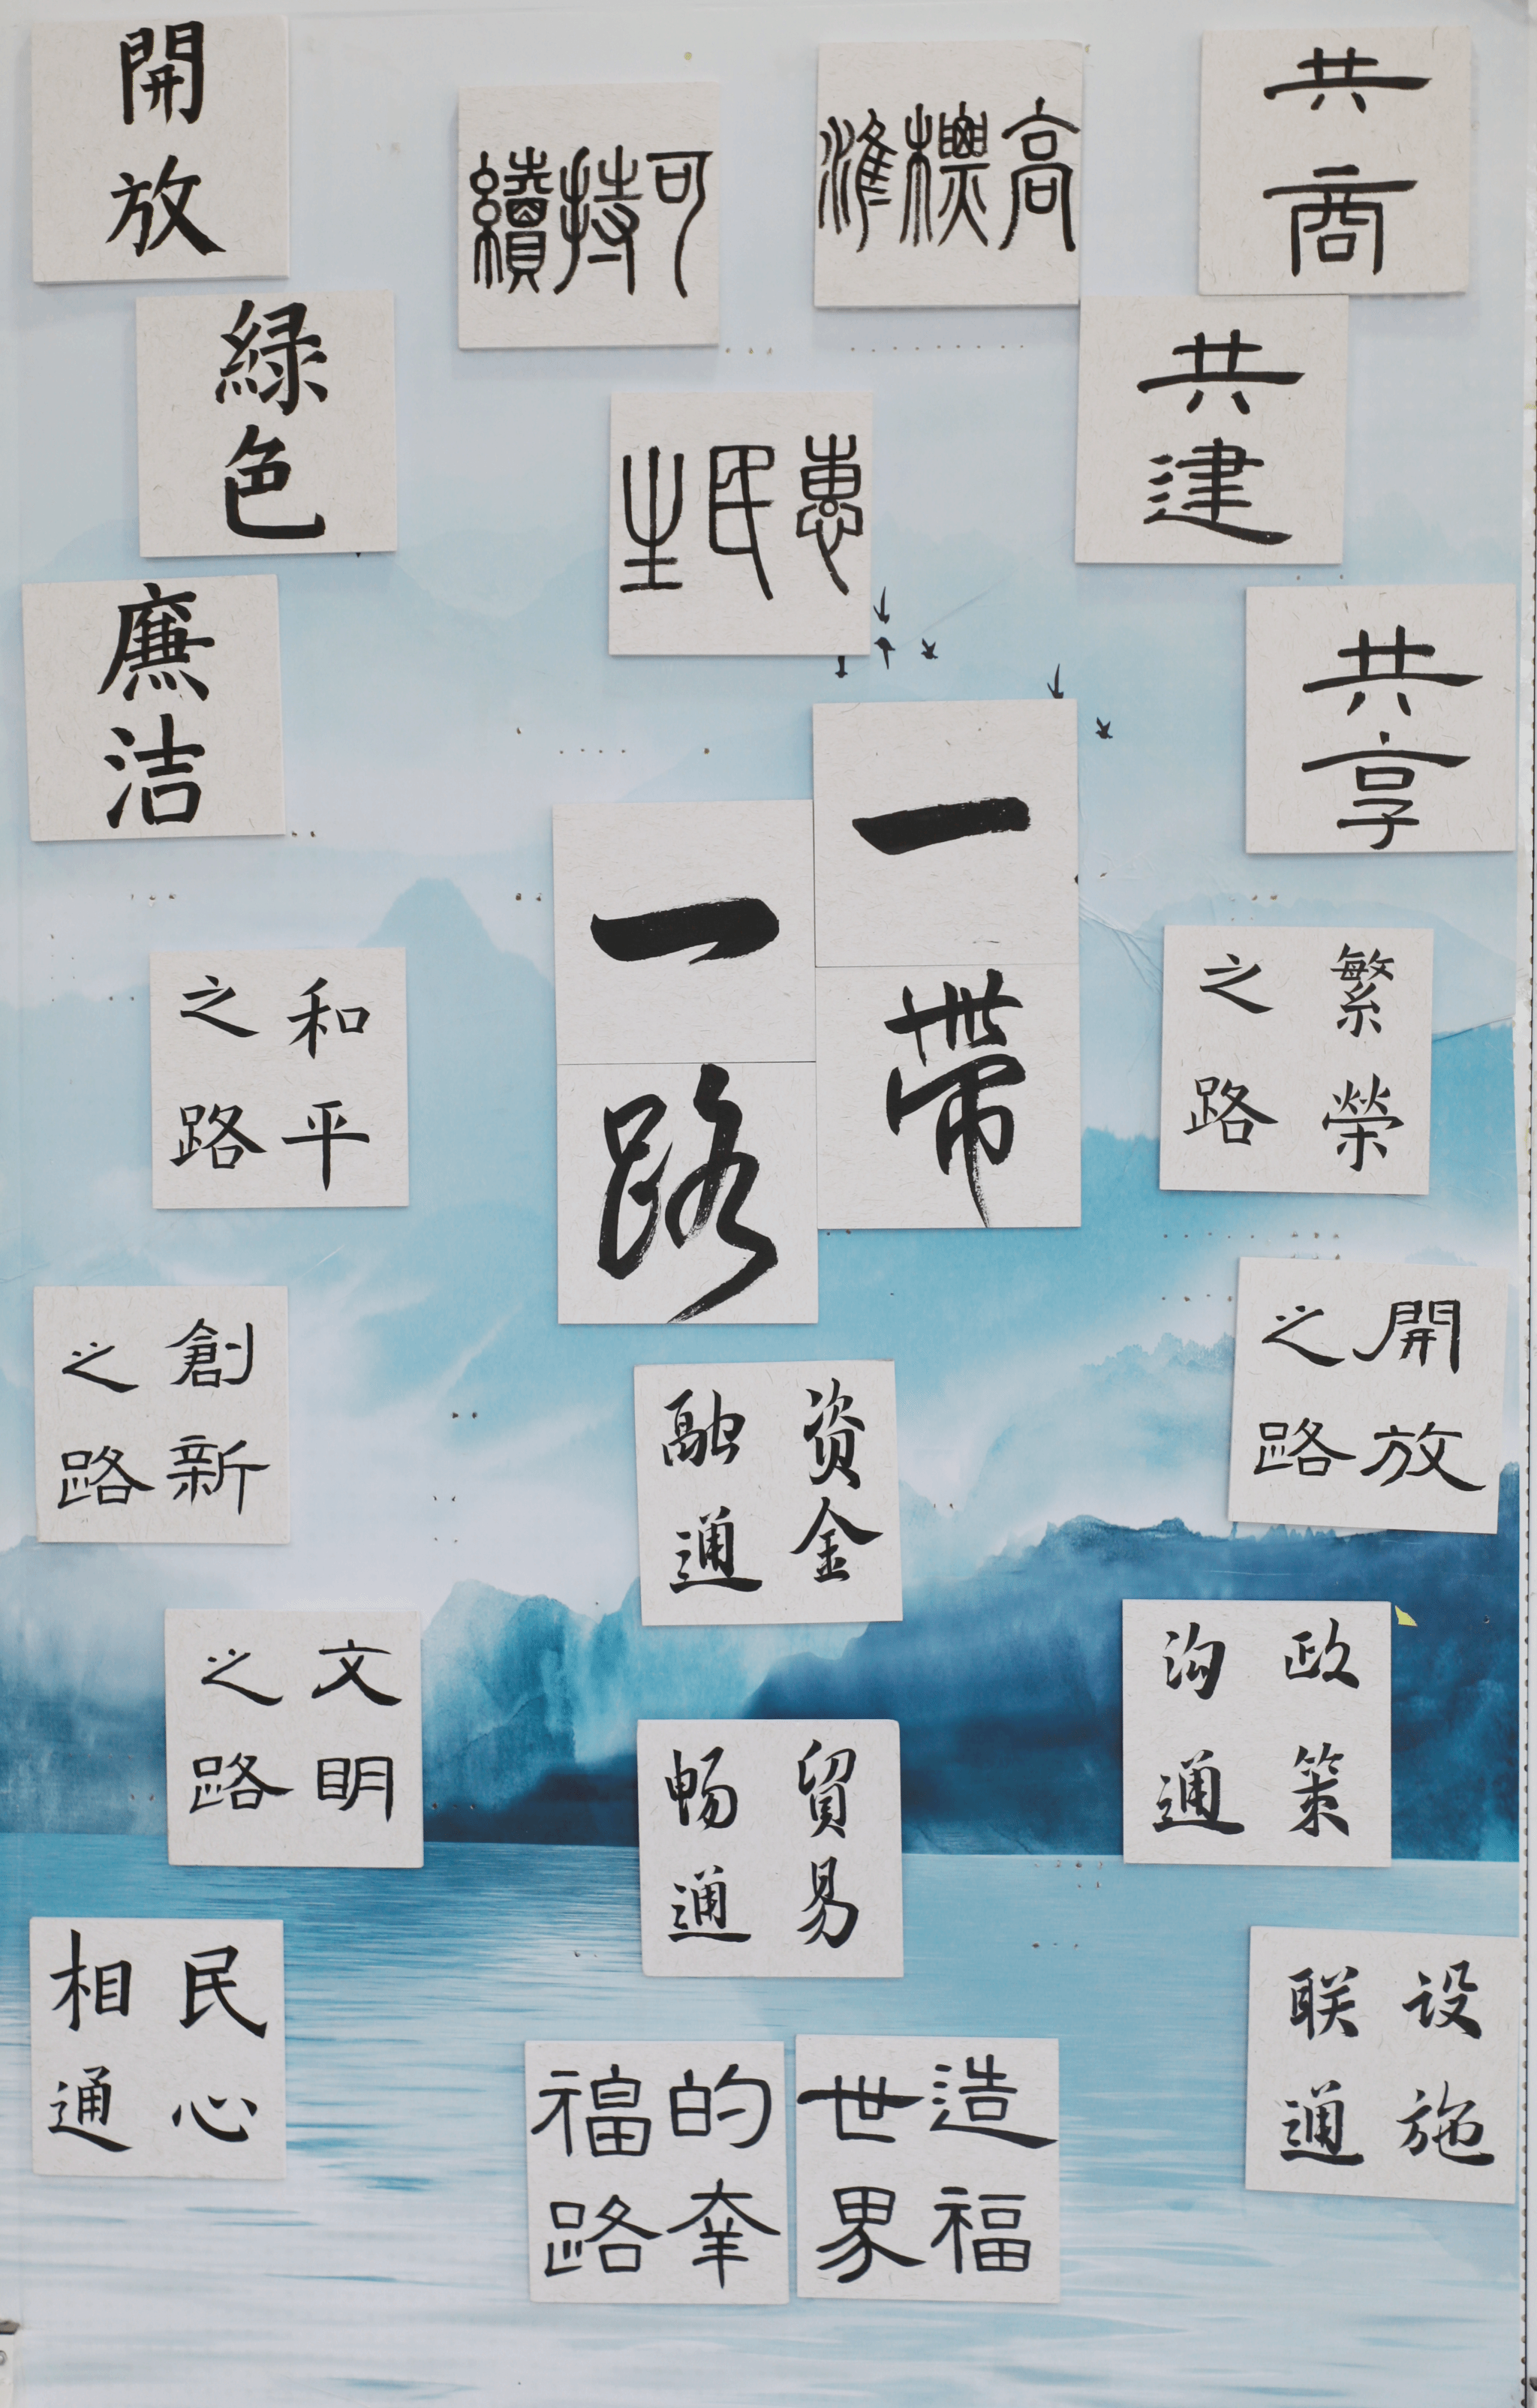 共商
共建
共享
高標準
可持續
惠民生
開放
緑色
廉洁
一带
一路
繁榮
之路
開放
之路
和平
之路
創新
之路
文明
之路
政策
沟通
设施
联通
資金
融通
貿易
畅通
民心
相通
造福
世界
的幸
福路